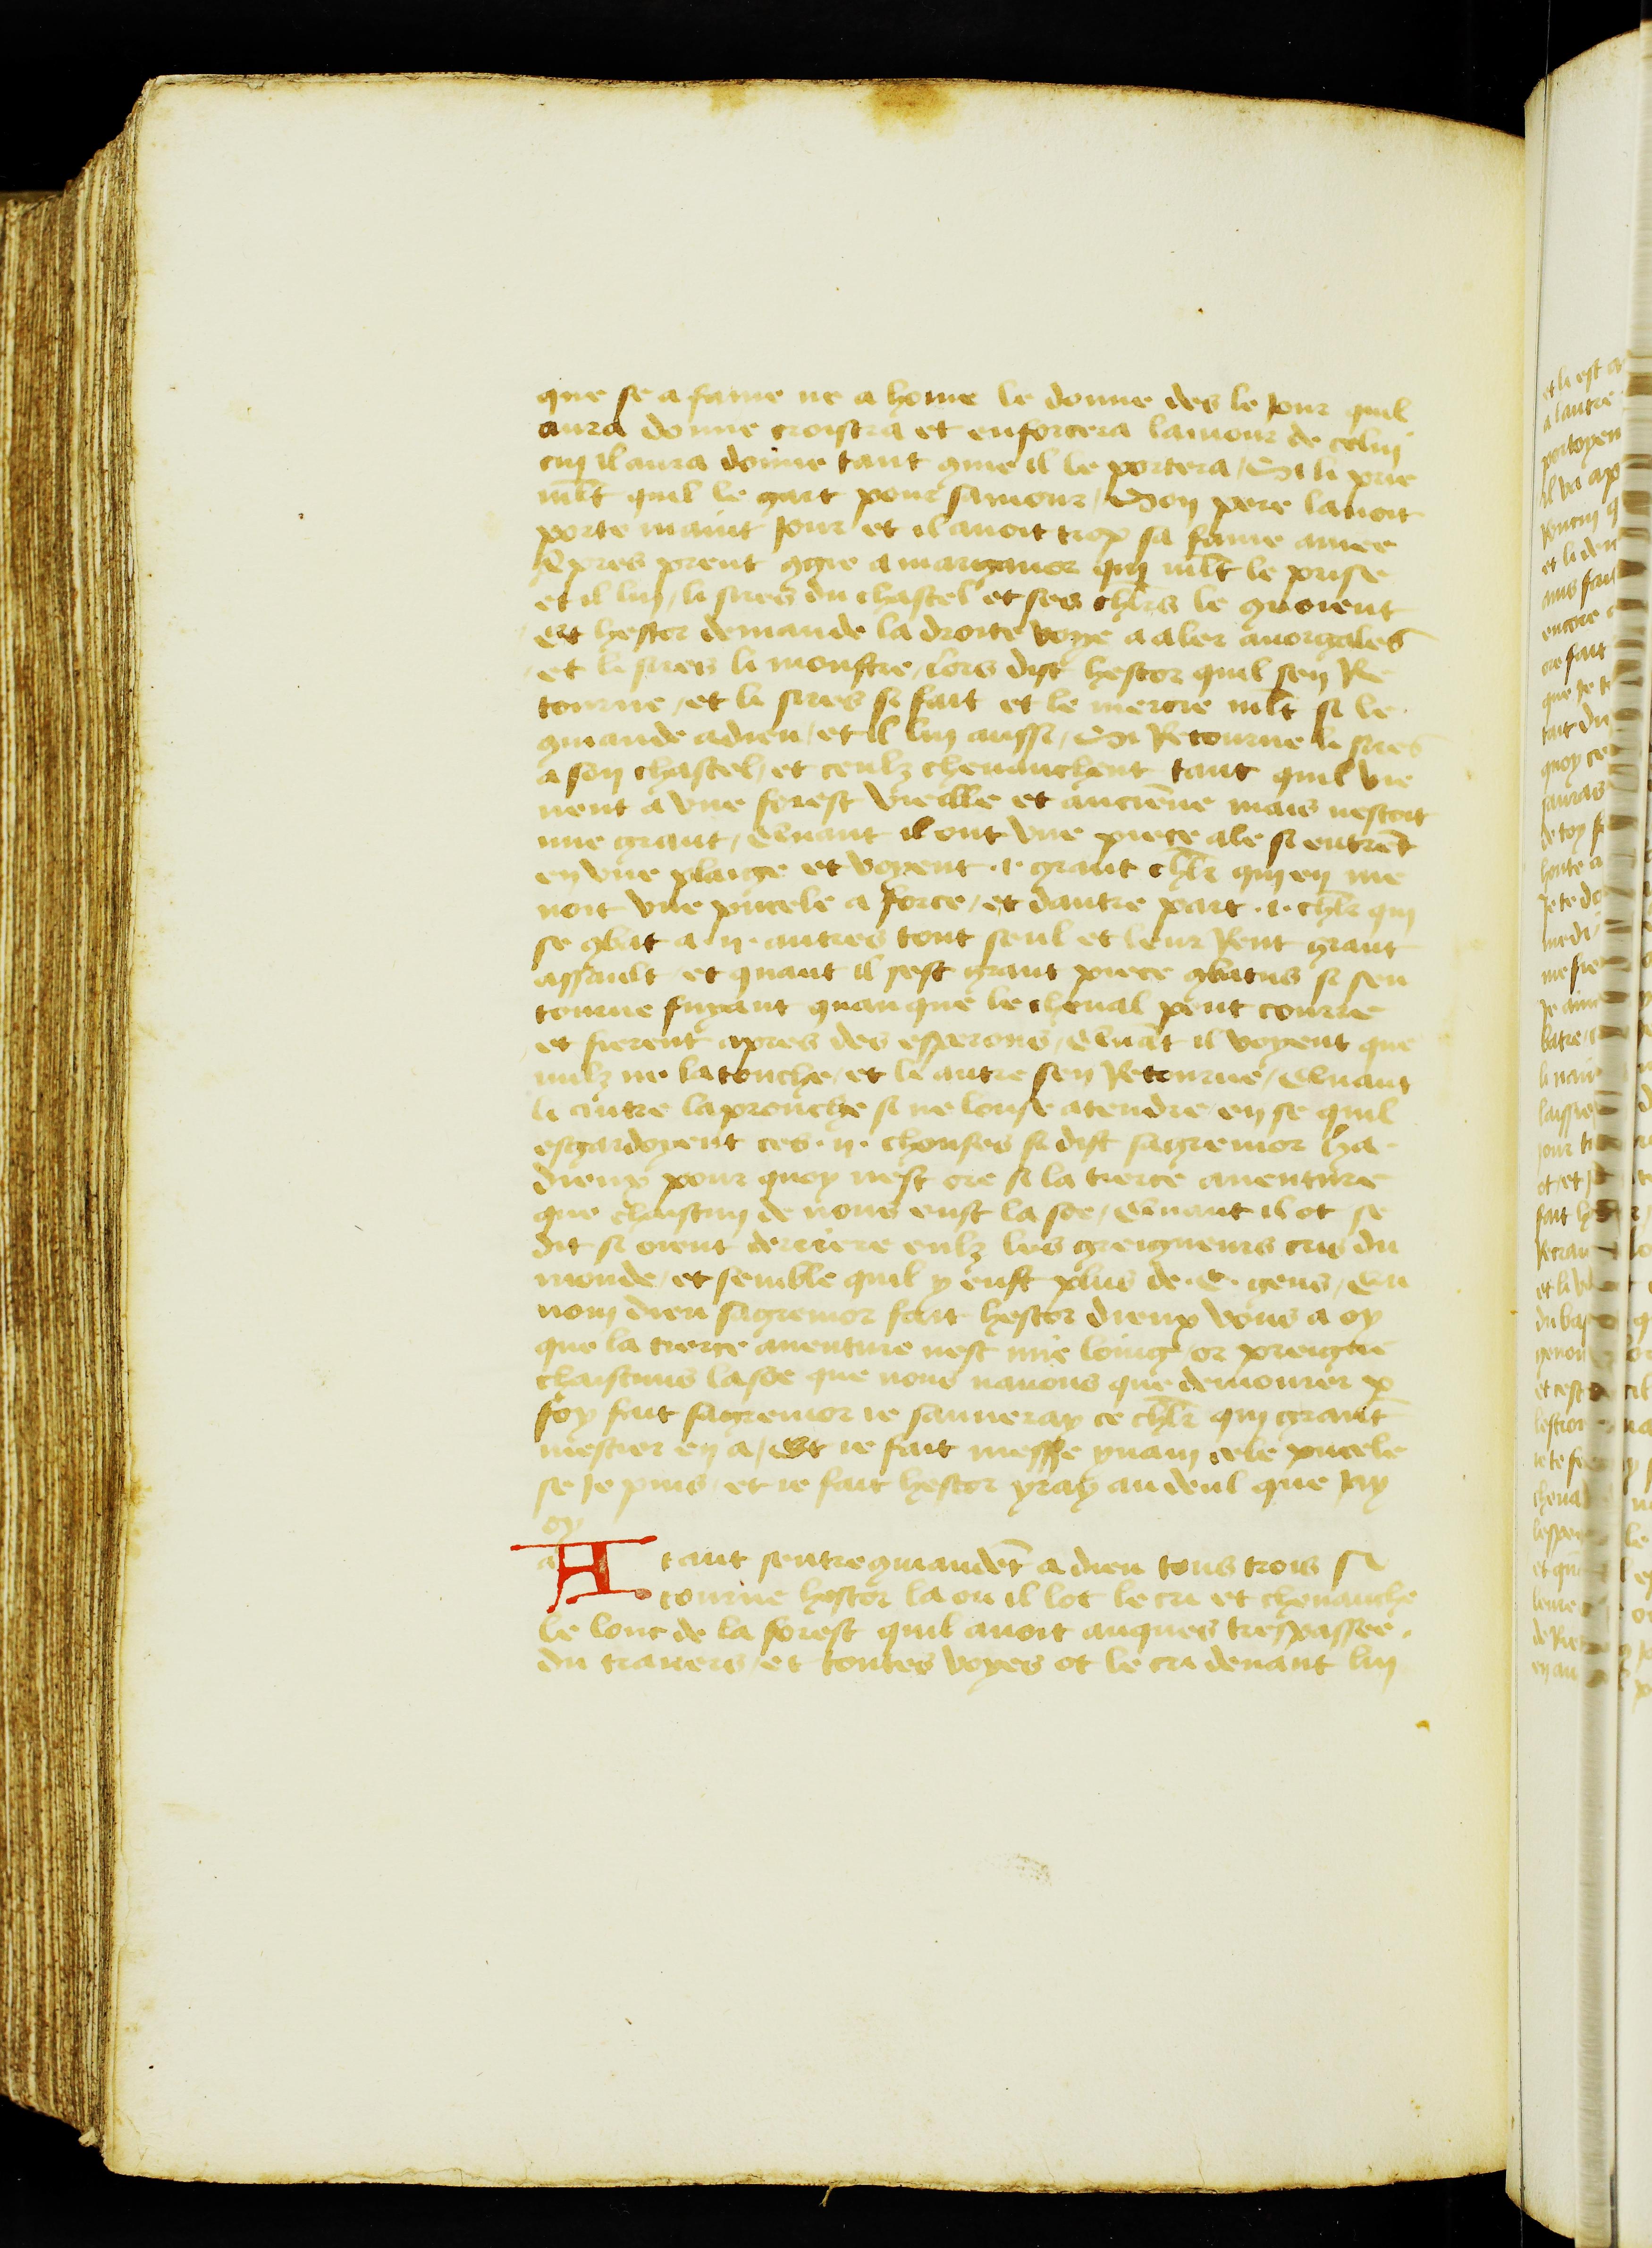 que se a fame ne a home le donne des le Jour quil
aura donne croistra et enforcera lamour de celui
cui il aura donne tant que il le portera / Si li prie
mlt quil le gart pour samour / Son pere lauoit
porte maint Jour et il auoit trop sa fame amee
Apres prent 9gie a marganor qui mlt le prise
et il lui / li sires du chastel et ses chlrs le 9uoient
Et hestor demande la droite voye a aler a norgales
et li sires li monstre / lors dist hestor quil sen Re
tourne / et li sires si fait et le mercie mlt si le
9mande a dieu / et il lui aussi / Si Retourne li sires
a son chastel / et ceulz cheuauchent tant quil vie
nent a vne forest vieille et ancienne mais nestoit
mie grant / Quant il ont vne piece ale si entrent
en vne plaige et voyent .i. grant chlr qui en me
noit vne pucele a force / et dautre part .i. chlr qui
se 9bat a .ii. autres tout seul et leur Rent grant
assault et quant il sest grant piece 9batus si sen
tourne fuyant quanque le cheual peut courre
et fierent apres des esperons / Quant il voyent que
nulz ne la touche / et li autre sen Retourne / Quant
li autre laprouche si ne louse atendre / en se quil
esgardoyent ces .ii. chouses si dist sagremor ha
dieux pour quoy nest ore si la tierce auenture
que chascun de nous eust la soe / Quant il ot se
dit si oient derriere eulz les greigneurs cris du
monde / et semble quil y eust plus de .C. gens / En
nom dieu sagremor fait hestor dieux vous a oy
que la tierce auenture nest mie loing / or preigne
chascuns la soe que nous nauons que demourer p
foy fait sagremor ie sauueray ce chlr qui grant
mestier en a / Et ie fait messe yuain cele pucele
se Je puis / et ie fait hestor yray au deul que Jay
oy
A tant sentre9mandent a dieu tous trois si
tourne hestor la ou il lot le cri et cheuauche
le lonc de la forest quil auoit auques trespassee
du trauers / et toutes voyes ot le cri deuant lui